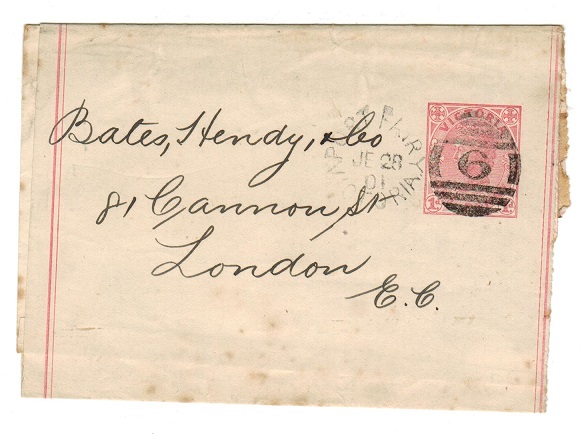 Bates, Hendy, & Co
81 Cannon St
London
E.C.
PORT FAIRY
JE 28
01
VICTORIA
VICTORIA
6